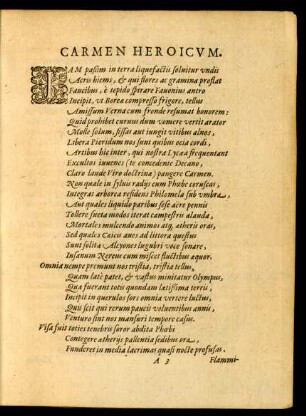 CARMEN HEROICVM.
IAM passim in terra liquefactis soluitur vndis
Acris hiems, & qui flores ac gramina proflat
Faucibus, è tepido spirare Fauonius antro
Incipit, vt Borea compresso frigore, tellus
Amissum Verna cum fronde resumat honorem:
Quid prohibet currus dum vomere vertit arator
Molle solum, fissas aut iungit vitibus alnos,
Libera Pieridum nos sunt quibus ocia cordi,
Artibus hic inter, qui nostra Lycæa frequentant
Excultos iuuenes (te concedente Decano,
Claro laude Viro doctrina) pangere Carmen.
Non quale in siluis radijs cum Phœbe coruscas,
Integrat arborea residens Philomela sub vmbra,
Aut quales liquido paribus sese aëre pennis
Tollere sueta modos iterat campestris alauda,
Mortales mulcendo animos atg, ætheris oras,
Sed quales Caicis aues ad littora questus
Sunt solitæ Alcyones lugubri voce sonare,
Insanum Nereus cum miscet fluctibus æquor.
Omnia nempe premunt nos tristia, tristia tellus,
Quam latè patet, & vastus minitatur Olympus,
Quæ fuerant totis quondam lætissima terris,
Incipit in querulos sors omnia vertere luctus,
Quis scit qui rerum paucis voluentibus annis,
Venturo sint nos mansuri tempore casus.
Visa fuit toties tenebris soror abdita Phœbi
Contegere ætherijs pallentia sedibus ora,
Funderet in media lacrimas quasi nocte profusas.
A 3 Flammi-